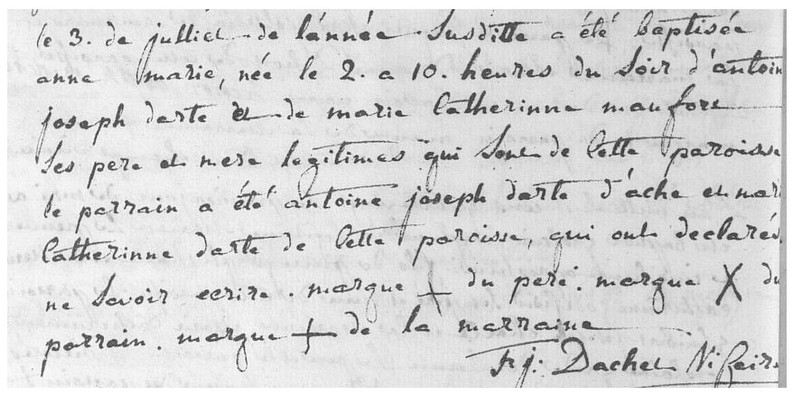 le 3. de julliet de lánnée Susditte a été baptisée
anne marie, née le 2. a 10. heures du Soir d'antoin
joseph darte et de marie Catherinne maufort
Ses pere et mere legitimes qui Sont de Cette paroisse
le parrain a été antoine joseph darte d'ache et mar
Catherinne darte de Cette paroisse, qui ont declarés
ne Savoir ecrire. marque + du pere. marque X du
parrain. marque + de la marraine
Dachet